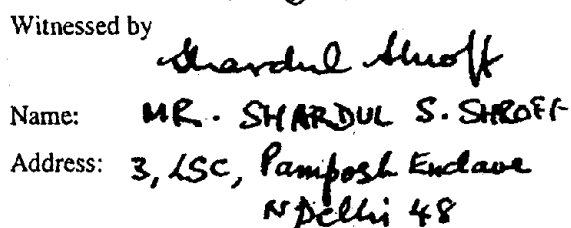 Witnessed by
Shardul Shroff
Name: MR. SHARDUL S. SHROFF
Address: 3, LSC, Pamposh Enclave
N Delhi 48